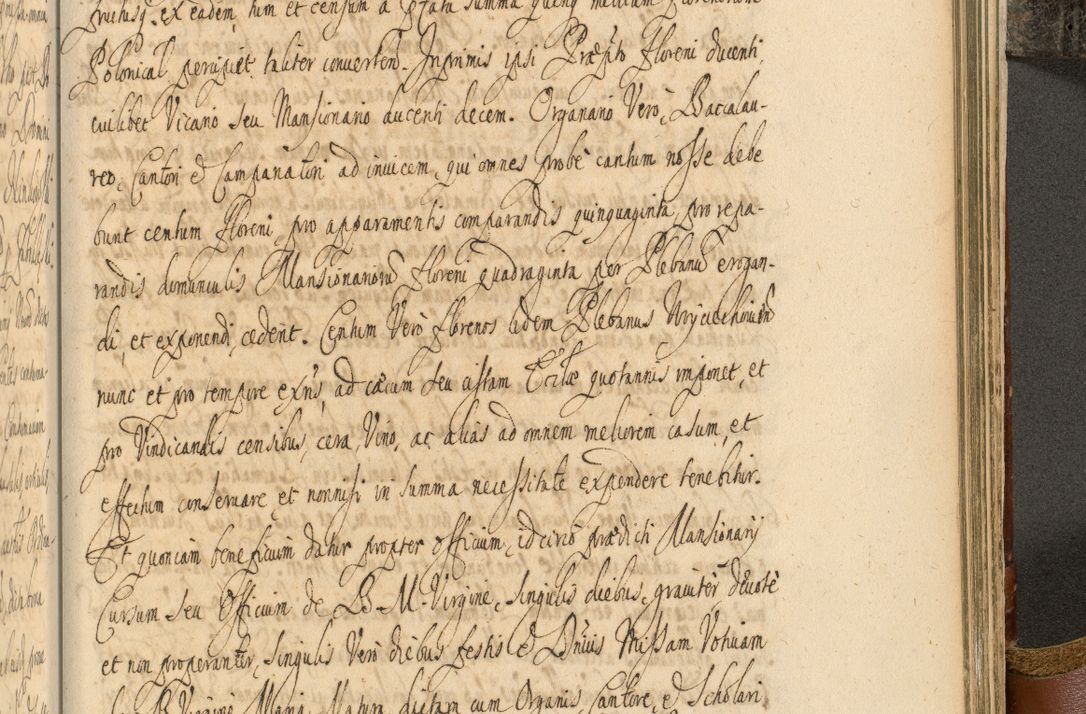 fructusq, ex eadem, tum et censum a pfata summa quinq millium florenorum
Polonical, percipiet taliter convertent. Inprimis ipsi Præpto floreni ducenti,
cuilibet Vicario seu Mansionario ducenti decem. Organario Verò, Baccalau-
reo, Cantori et Campanatori ad invicem, qui omnes probè cantum nosse debe
bunt centum floreni, pro apparamentis comparandis quinquaginta, pro repa-
randis domunculis Mansionariorũ floreni quadraginta per Plebanũ erogan-
di, et exponendi, cedent. Centum Verò florenos idem Plebanus
nunc et pro tempore exñs, ad cæcum seu cistam Ecclæ quotannis imponet, et
pro Vindicandis censibus, cera, Vino, ac alias ad omnem meliorem casum, et
effectum conservare, et nonnisi in summa necessitate expendere tenebitur.
Et quoniam beneficium datur propter officium, idcirco prædicti Mansionarij
Cursum seu Officium de B. M. Virgine, singulis diebus, graviter, devotè
et non properanter, singulis Verò diebus festis et Dñicis Missam Votivam
de B Virgine Maria, Matura dictam cum Organis, Cantore, et Scholari,